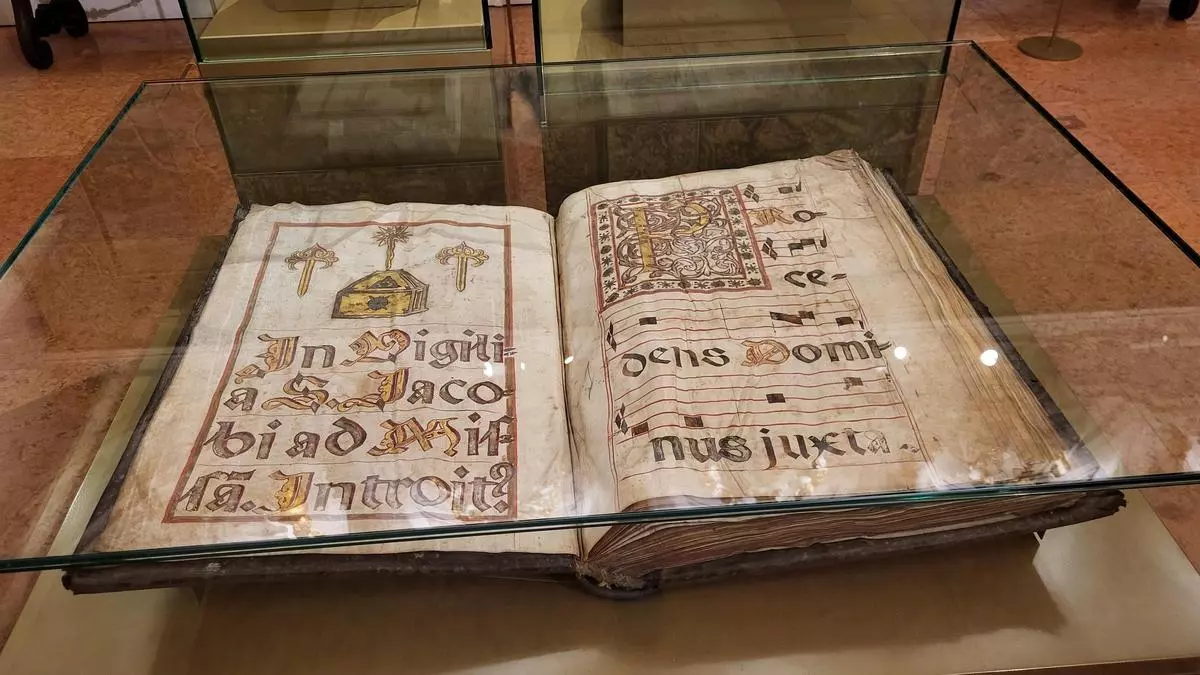 In Vigili
a S. Jaco-
bi ad Miſ-
ſã. Introit⁹
PRo
ce-
dens Domi-
nus juxta